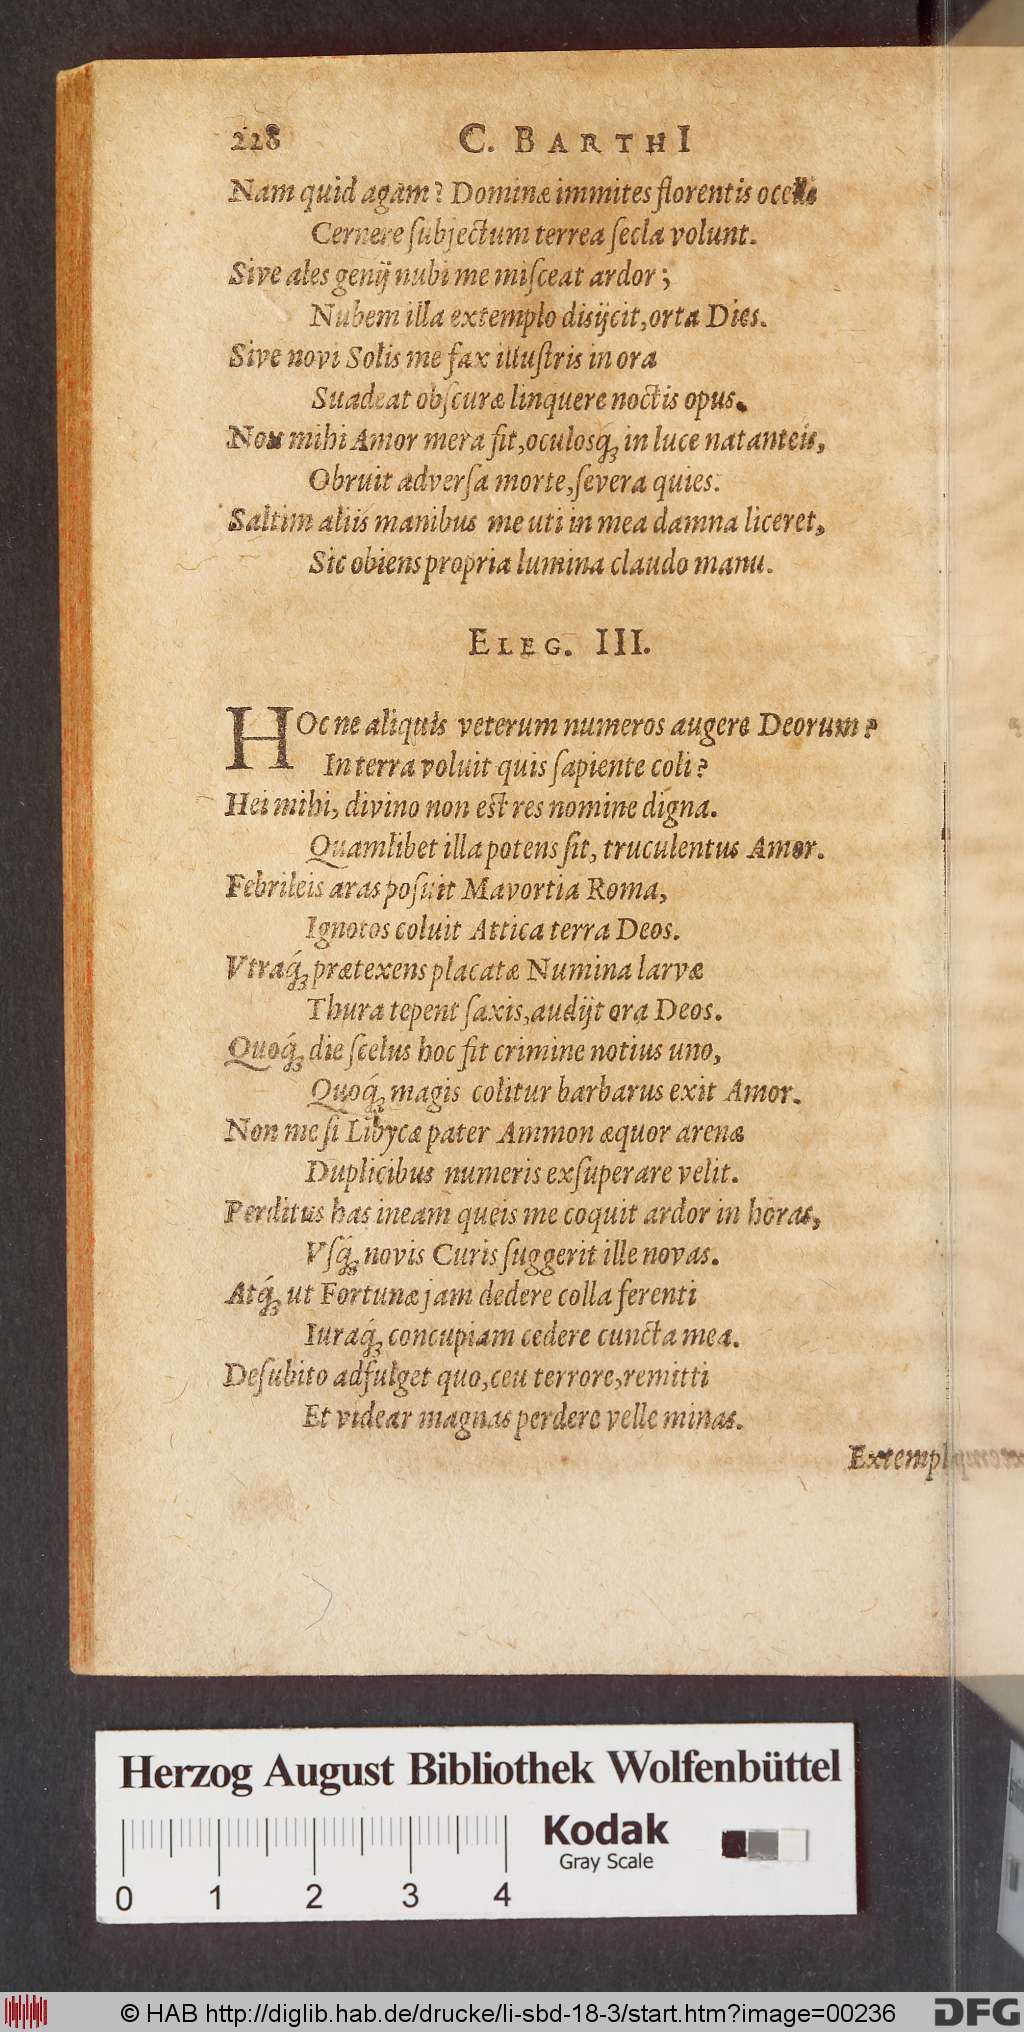 228 C. BARTHI
Nam quid agam? Dominæ immites florentis ocelli
Cernere ſubjectum terrea ſecla volunt.
Sive ales genij nubi me miſceat ardor;
Nubem illa extemplo disijcit, orta Dies.
Sive novi Solis me fax illuſtris in ora
Suadeat obſcuræ linquere noctis opus.
Non mihi Amor mera fit, oculosq́ꝫ in luce natanteis,
Obruit adverſa morte, ſevera quies.
Saltim aliis manibus me uti in mea damna liceret,
Sic obiens propria lumina claudo manu.
ELEG. III.
HOc ne aliquis veterum numeros augere Deorum?
In terra voluit quis ſapiente coli?
Hei mihi, divino non est res nomine digna.
Quamlibet illa potens ſit, truculentus Amor.
Febrileis aras poſuit Mavortia Roma,
Ignotos coluit Attica terra Deos.
Vtraq́ꝫ prætexens placatæ Numina larvæ
Thura tepent ſaxis, audijt ora Deos.
Quoq́ꝫ die ſcelus hoc fit crimine notius uno,
Quoq́ꝫ magis colitur barbarus exit Amor.
Non me ſi Libycæ pater Ammon æquor arenæ
Duplicibus numeris exſuperare velit.
Perditus has ineam queis me coquit ardor in horas,
Vſq́ꝫ novis Curis ſuggerit ille novas.
Atq́ꝫ ut Fortunæ jam dedere colla ferenti
Iuraq́ꝫ concupiam cedere cuncta mea.
Deſubito adfulget quo, ceu terrore, remitti
Et videar magnas perdere velle minas.
Extempl
Herzog August Bibliothek Wolfenbüttel
Kodak
Gray Scale
0 1 2 3 4
© HAB http://diglib.hab.de/drucke/li-sbd-18-3/start.htm?image=00236
DFG